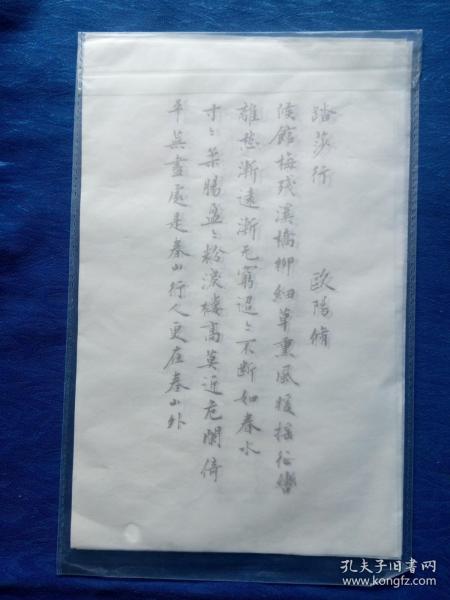 踏莎行 歐陽脩
候館梅殘溪橋柳細草熏風暖搖征轡
離愁漸遠漸无窮迢〻不斷如春水
寸〻柔腸盈〻粉淚樓高莫近危闌倚
平蕪盡處是春山行人更在春山外
孔夫子旧书网
www.kongfz.com